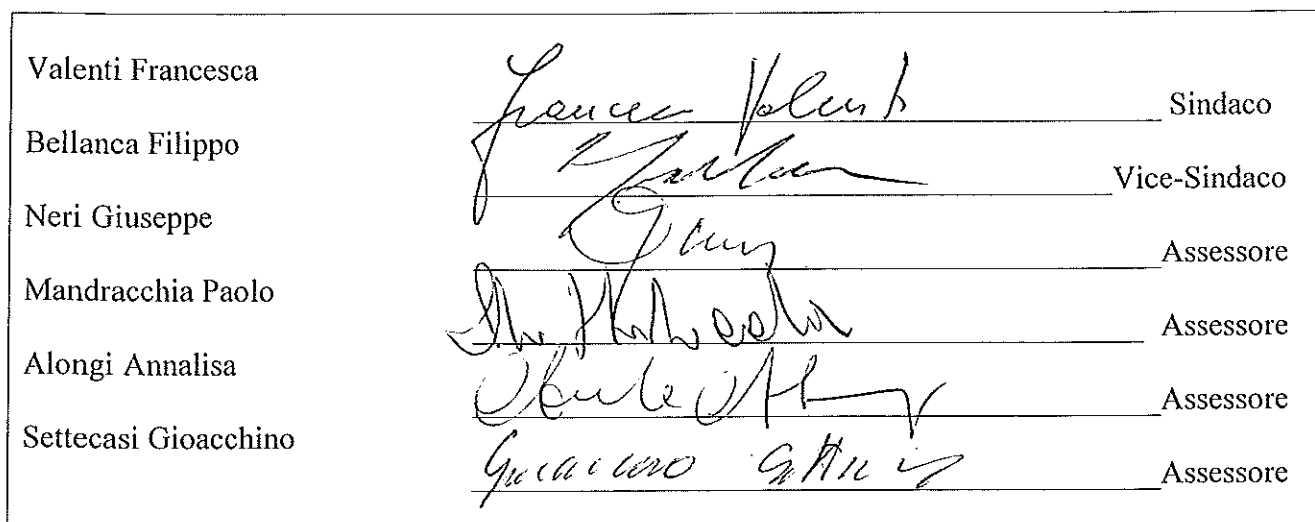 Valenti Francesca Francesca Valenti Sindaco
Bellanca Filippo Vice-Sindaco
Neri Giuseppe Assessore
Mandracchia Paolo Assessore
Alongi Annalisa Assessore
Settecasi Gioacchino Assessore